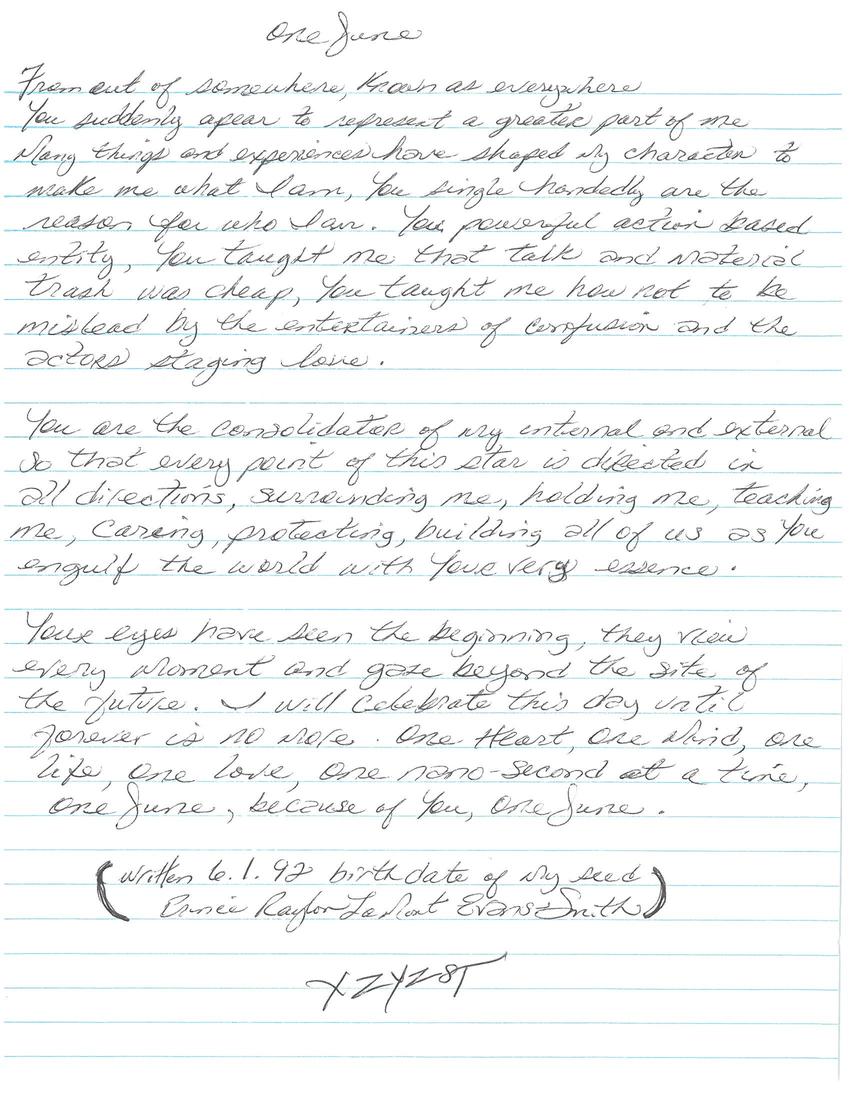 One June
From out of somewhere, Known as everywhere
You suddenly apear to represent a greater part of me
Many things and experiences have shaped my character to
make me what I am, You single handedly are the
reason for who I am. You powerful action based
entity, You taught me that talk and material
trash was cheap, You taught me how not to be
mislead by the entertainers of confusion and the
actors staging love.
You are the consolidator of my internal and external
so that every point of this star is directed in
all directions, surrounding me, holding me, teaching
me, caring, protecting, building all of us as You
engulf the world with Your very essence.
Your eyes have seen the beginning, they view
every moment and gaze beyond the site of
the future. I will celebrate this day until
forever is no more. One Heart, One Mind, one
life, one love, one nano-second at a time,
One June, because of You, One June.
(written 6.1.92 birthdate of my seed
Raylon LaMont Evans-Smith)
XZYZST